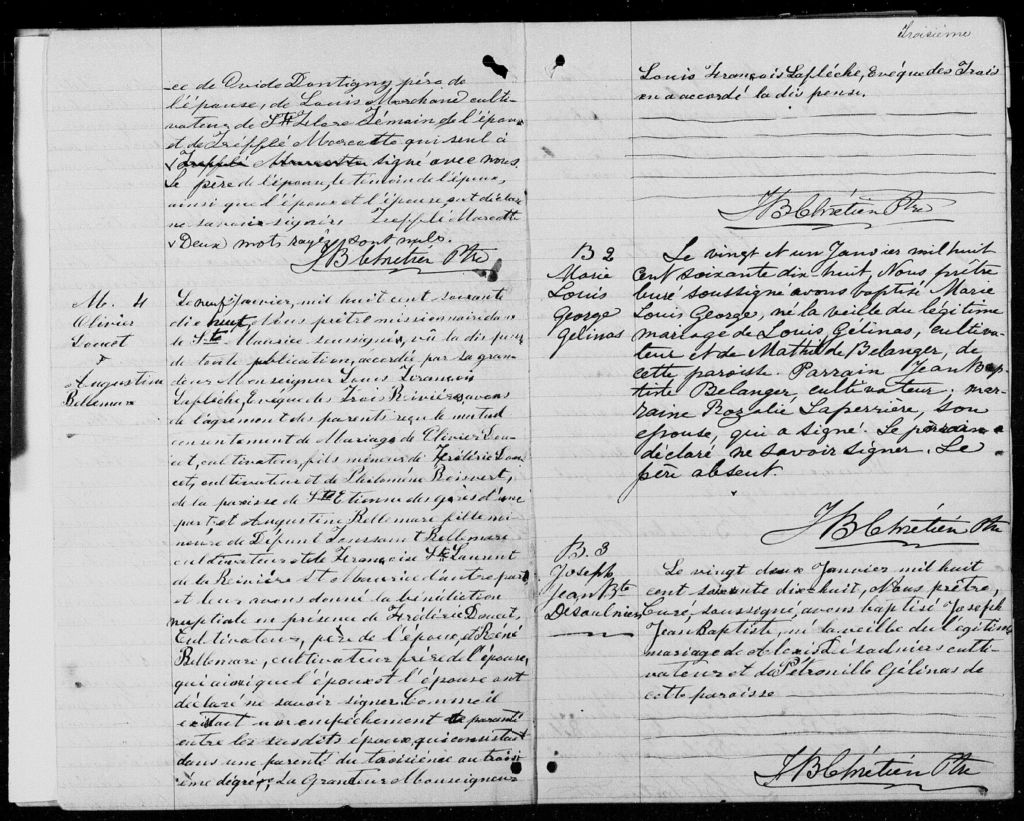 ce de Ovide Dontigny père de
l'épouse, de Louis Marchand culti-
vateur de Ste Flore Témoin de l'époux
et de Trefflé Marcotte qui seul à
signé avec nous
le père de l'époux, le témoin de l'époux,
ainsi que l'époux et l'épouse ont déclaré
ne savoir signer Trefflé Marcotte
Deux mots rayés sont nuls.
J B Chrétien Ptre
M. 4
Olivier
Doucet
&
Augustine
Bellemare
Le neuf Janvier, mil huit cent soixante
dix huit, Nous prêtre missionnaire dans
le St Maurice soussigné, vû la dispense
de toute publication, accordée par sa gran-
deur Monseigneur Louis François
Laflèche, Evêque des Trois Rivières avons
de l'agrément des parents reçu le mutuel
consentement de Mariage de Olivier Dou-
cet, cultivateur, fils mineur de Frédéric Dou-
cet, cultivateur et de Philomène Boisvert,
de la paroisse de St Etienne des grès d'une
part, et Augustine Bellemare fille mi-
neure de Défunt Toussaint Bellemare
cultivateur et de Françoise St Laurent
de la Rivière St Maurice d'autre part
et leur avons donné la bénédiction
nuptiale en présence de Frédéric Doucet,
Cultivateur, père de l'époux, et René
Bellemare, cultivateur frère de l'épouse,
qui ainsi que l'époux et l'épouse ont
déclaré ne savoir signer. Comme il
existait un empêchement de parenté
entre les susdits époux, qui consistait
dans une parenté du troisième au trois-
ième dégrés, Sa Grandeur Monseigneur
Troisième
Louis François Laflèche, Evêque des Trois
en a accordé la dispense.
J B Chrétien Ptre
B 2
Marie
Louis
George
Gelinas
Le vingt et un Janvier mil huit
cent soixante dix huit, Nous prêtre
Curé soussigné avons baptisé Marie
Louis George, né la veille du légitime
mariage de Louis Gélinas, cultiva-
teur et de Mathilde Belanger, de
cette paroisse. Parrain Jean Bap-
tiste Belanger, cultivateur, mar-
raine Rozalie Laperrière, son
epouse, qui a signé. Le parrain a
déclaré ne savoir signer. Le
père absent.
J B Chrétien Ptre
B. 3
Joseph
Jean Bte
Desaulniers
Le vingt deux Janvier mil huit
cent soixante dix-huit, Nous prêtre,
Curé, soussigné, avons baptisé Joseph
Jean Baptiste, né la veille du légitime
mariage de Alexis Desaulniers culti-
vateur et de Pétronille Gélinas de
cette paroisse
J B Chrétien Ptre